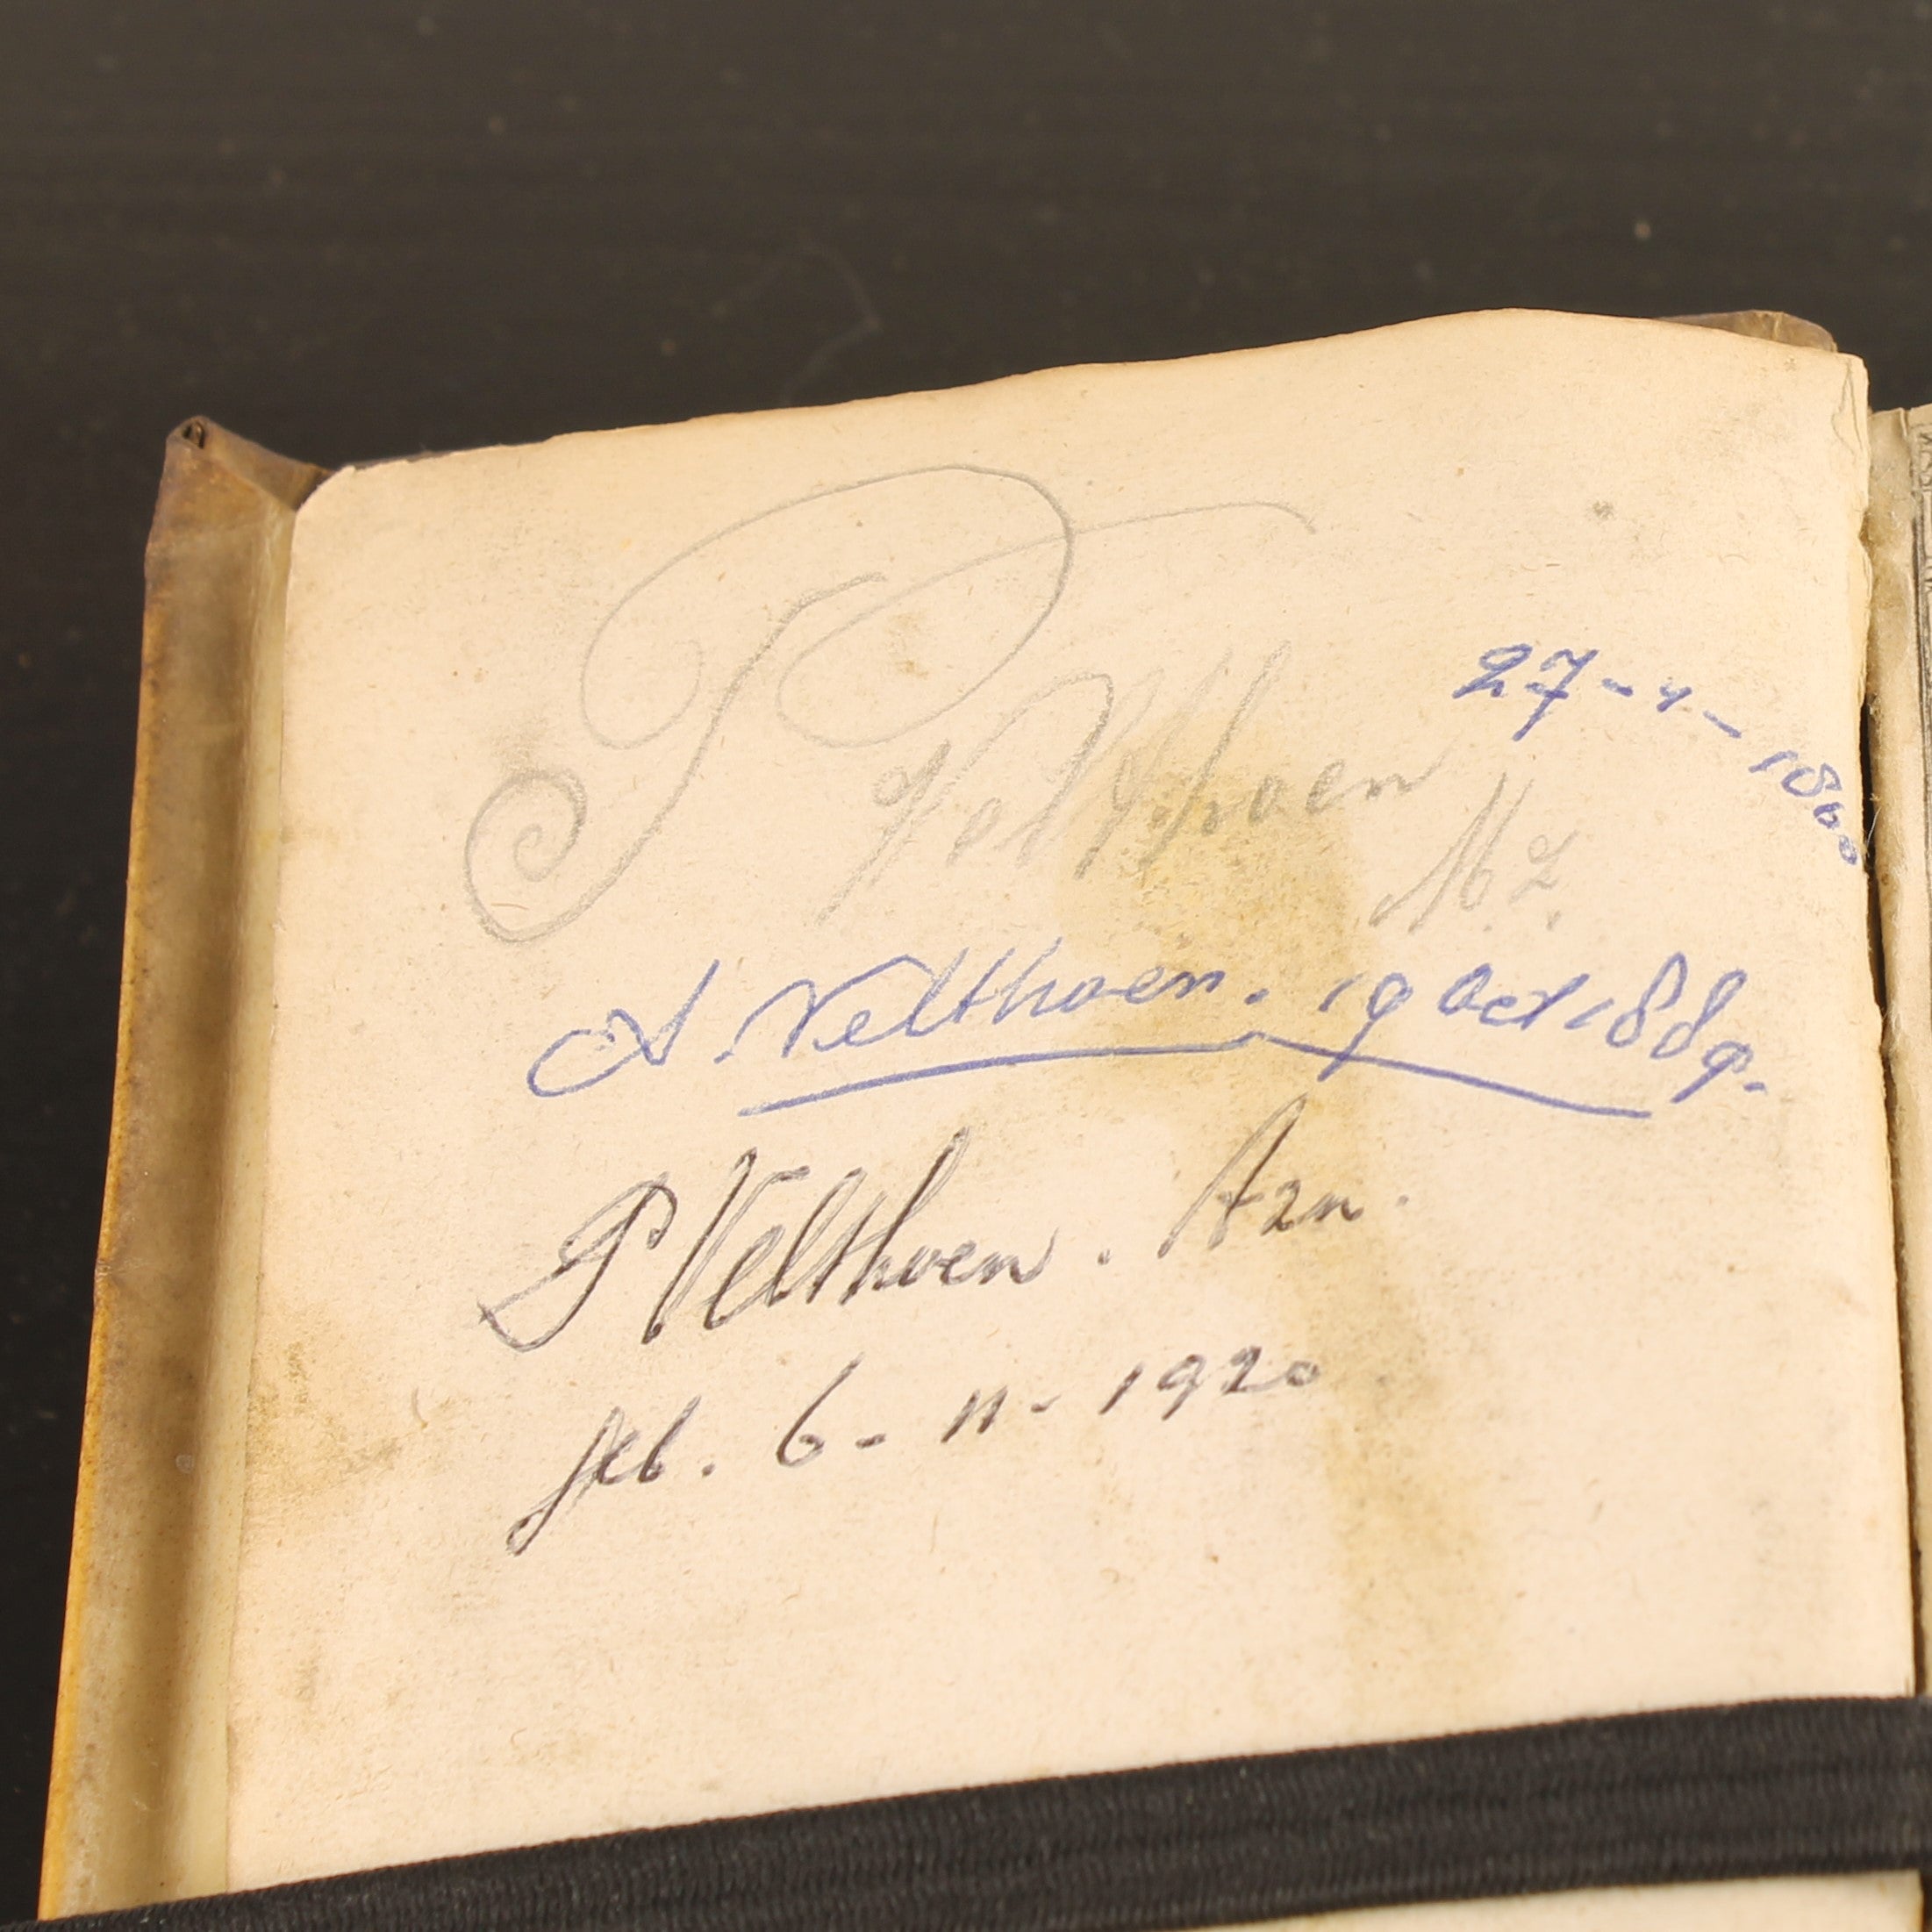 P Velthoen
27-4-1860
M.Z.
A. Velthoen. 19 Oct 1889.
P Velthoen. Azn.
geb. 6-11-1920